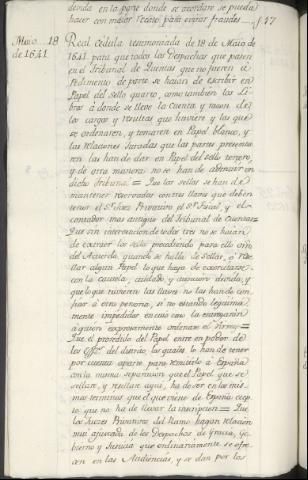 denda en la parte donde se acordare se pueda
hacer con maior recato para evitar fraudes — f. 17
Maio 18
de 1641.
Real cedula testimoniada de 18 de Maio de
1641 para que todos los Despachos que pasen
en el Tribunal de Quentas que no fueren de
Pedimento de parte se haian de escribir en
Papel del sello quarto, como tambien los Li-
bros à donde se lleve la Cuenta y razon de
los cargos y resultas que huviere y las que
se ordenaren, y tomaren en Papel blanco, y
las Relaciones Juradas que las partes presenta-
ren las han de dar en Papel del sello tercero,
y de otra manera no se han de admitir en
dicho Tribunal = Que los sellos se han de
mantener reservados con tres llaves que deben
tener el Sr. Juez Privativo el Sr. Fiscal, y el
contador mas antiguo del Tribunal de Cuentas =
Que sin intervencion de todos tres no se haian
de exercer los sellos precediendo para ello
del Acuerdo, quando se halla de sellar, ò re-
sellar algun Papel lo que haya de executarse
con la cautela, cuidado y atencion devida, y
que los que tuvieren las llaves no las han de con-
fiar à otra persona, si no estando legitima-
mente impedidos en cuio caso la entregarán
à quien expresamente ordenase el Virrey =
Que el procedido del Papel entre en poder de
los Offs. del distrito los quales lo han de tener
por cuenta aparte para remitirlo à España
con la misma separacion que el Papel que se
sellare, y resellare aqui, ha de ser en los mis-
mos terminos que el que viene de España excep-
to que no ha de llevar la inscripcion = Que
los Jueces Privativos del Ramo hagan relacion
mui ajustada de los Despachos de Gracia, Go-
bierno y Justicia que ordinariamente se ofre-
cen en las Audiencias, y se dan por los